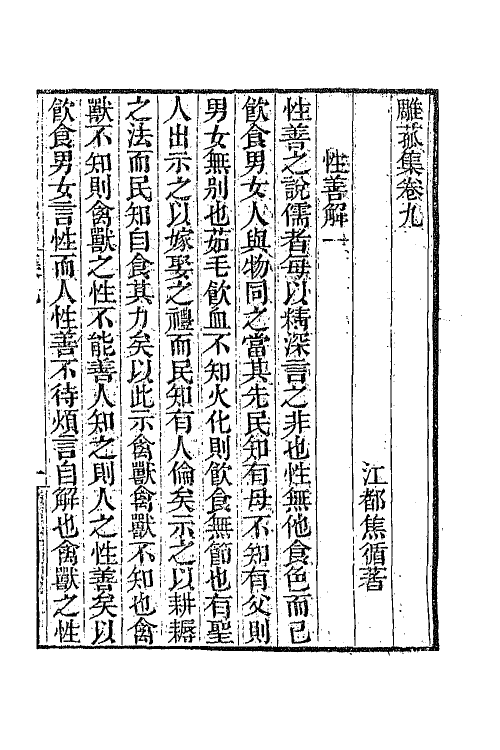 雕菰集卷九
江都焦循著
性善解一
性善之說儒者每以精深言之非也性無他食色而已
飲食男女人與物同之當其先民知有母不知有父則
男女無别也茹毛飲血不知火化則飲食無節也有聖
人出示之以嫁娶之禮而民知有人倫矣示之以耕耨
之法而民知自食其力矣以此示禽獸禽獸不知也禽
獸不知則禽獸之性不能善人知之則人之性善矣以
飲食男女言性而人性善不待煩言自解也禽獸之性